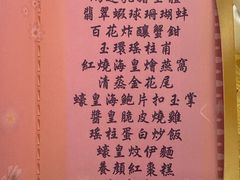 翡翠蝦球珊瑚蚌
百花炸釀蟹鉗
玉環瑤柱甫
紅燒海皇燴燕窩
清蒸金花尾
蠔皇海鮑片扣玉掌
醬皇脆皮燒雞
瑤柱蛋白炒飯
蠔皇炆伊麵
養顏紅棗糕